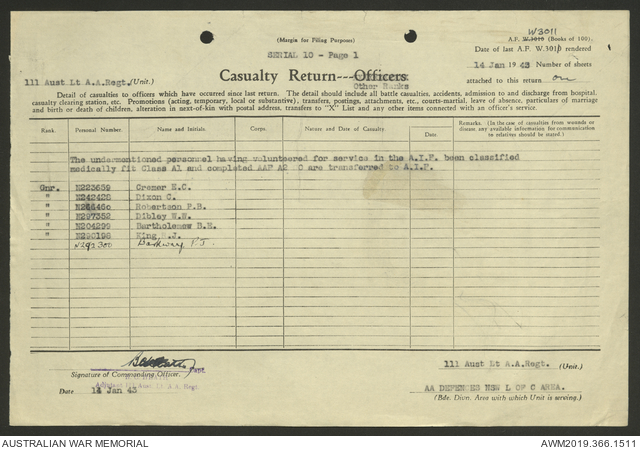 (Margin for Filing Purposes)
W3011
A.F. W.3010 (Books of 100).
Date of last A.F. W.3010 rendered
SERIAL 10 - Page 1
14 Jan 1943 Number of sheets
111 Aust Lt A.A.Regt. (Unit.)
Casualty Return---Officers
attached to this return one
Other Ranks
Detail of casualties to officers which have occurred since last return. The detail should include all battle casualties, accidents, admission to and discharge from hospital,
casualty clearing station, etc. Promotions (acting, temporary, local or substantive), transfers, postings, attachments, etc., courts-martial, leave of absence, particulars of marriage
and birth or death of children, alteration in next-of-kin with postal address, transfers to "X" List and any other items connected with an officer's service.
Rank. Personal Number. Name and Initials. Corps. Nature and Date of Casualty. Date Remarks. (In the case of casualties from wounds or
disease any available information for communication
to relatives should be stated.)
The undermentioned personnel having volunteered for service in the A.I.F. been classified
medically fit Class A1 and completed AAF A2 C are transferred to A.I.F.
Gnr. N223659 Cremer H.C.
" N242428 Dixon C.
" Robertson P.B.
" N297352 Dibley W.N.
" N204299 Bartholomew B.E.
" N290198 King .J.
N292300 P.J.
Capt.
Signature of Commanding Officer.
Adjutant 111 Aust Lt A.A. Regt.
Date 14 Jan 43
111 Aust Lt A.A.Regt. (Unit.)
AA DEFENCES NSW L OF C AREA.
(Bde. Divn. Area with which Unit is serving.)
AUSTRALIAN WAR MEMORIAL
AWM2019.366.1511